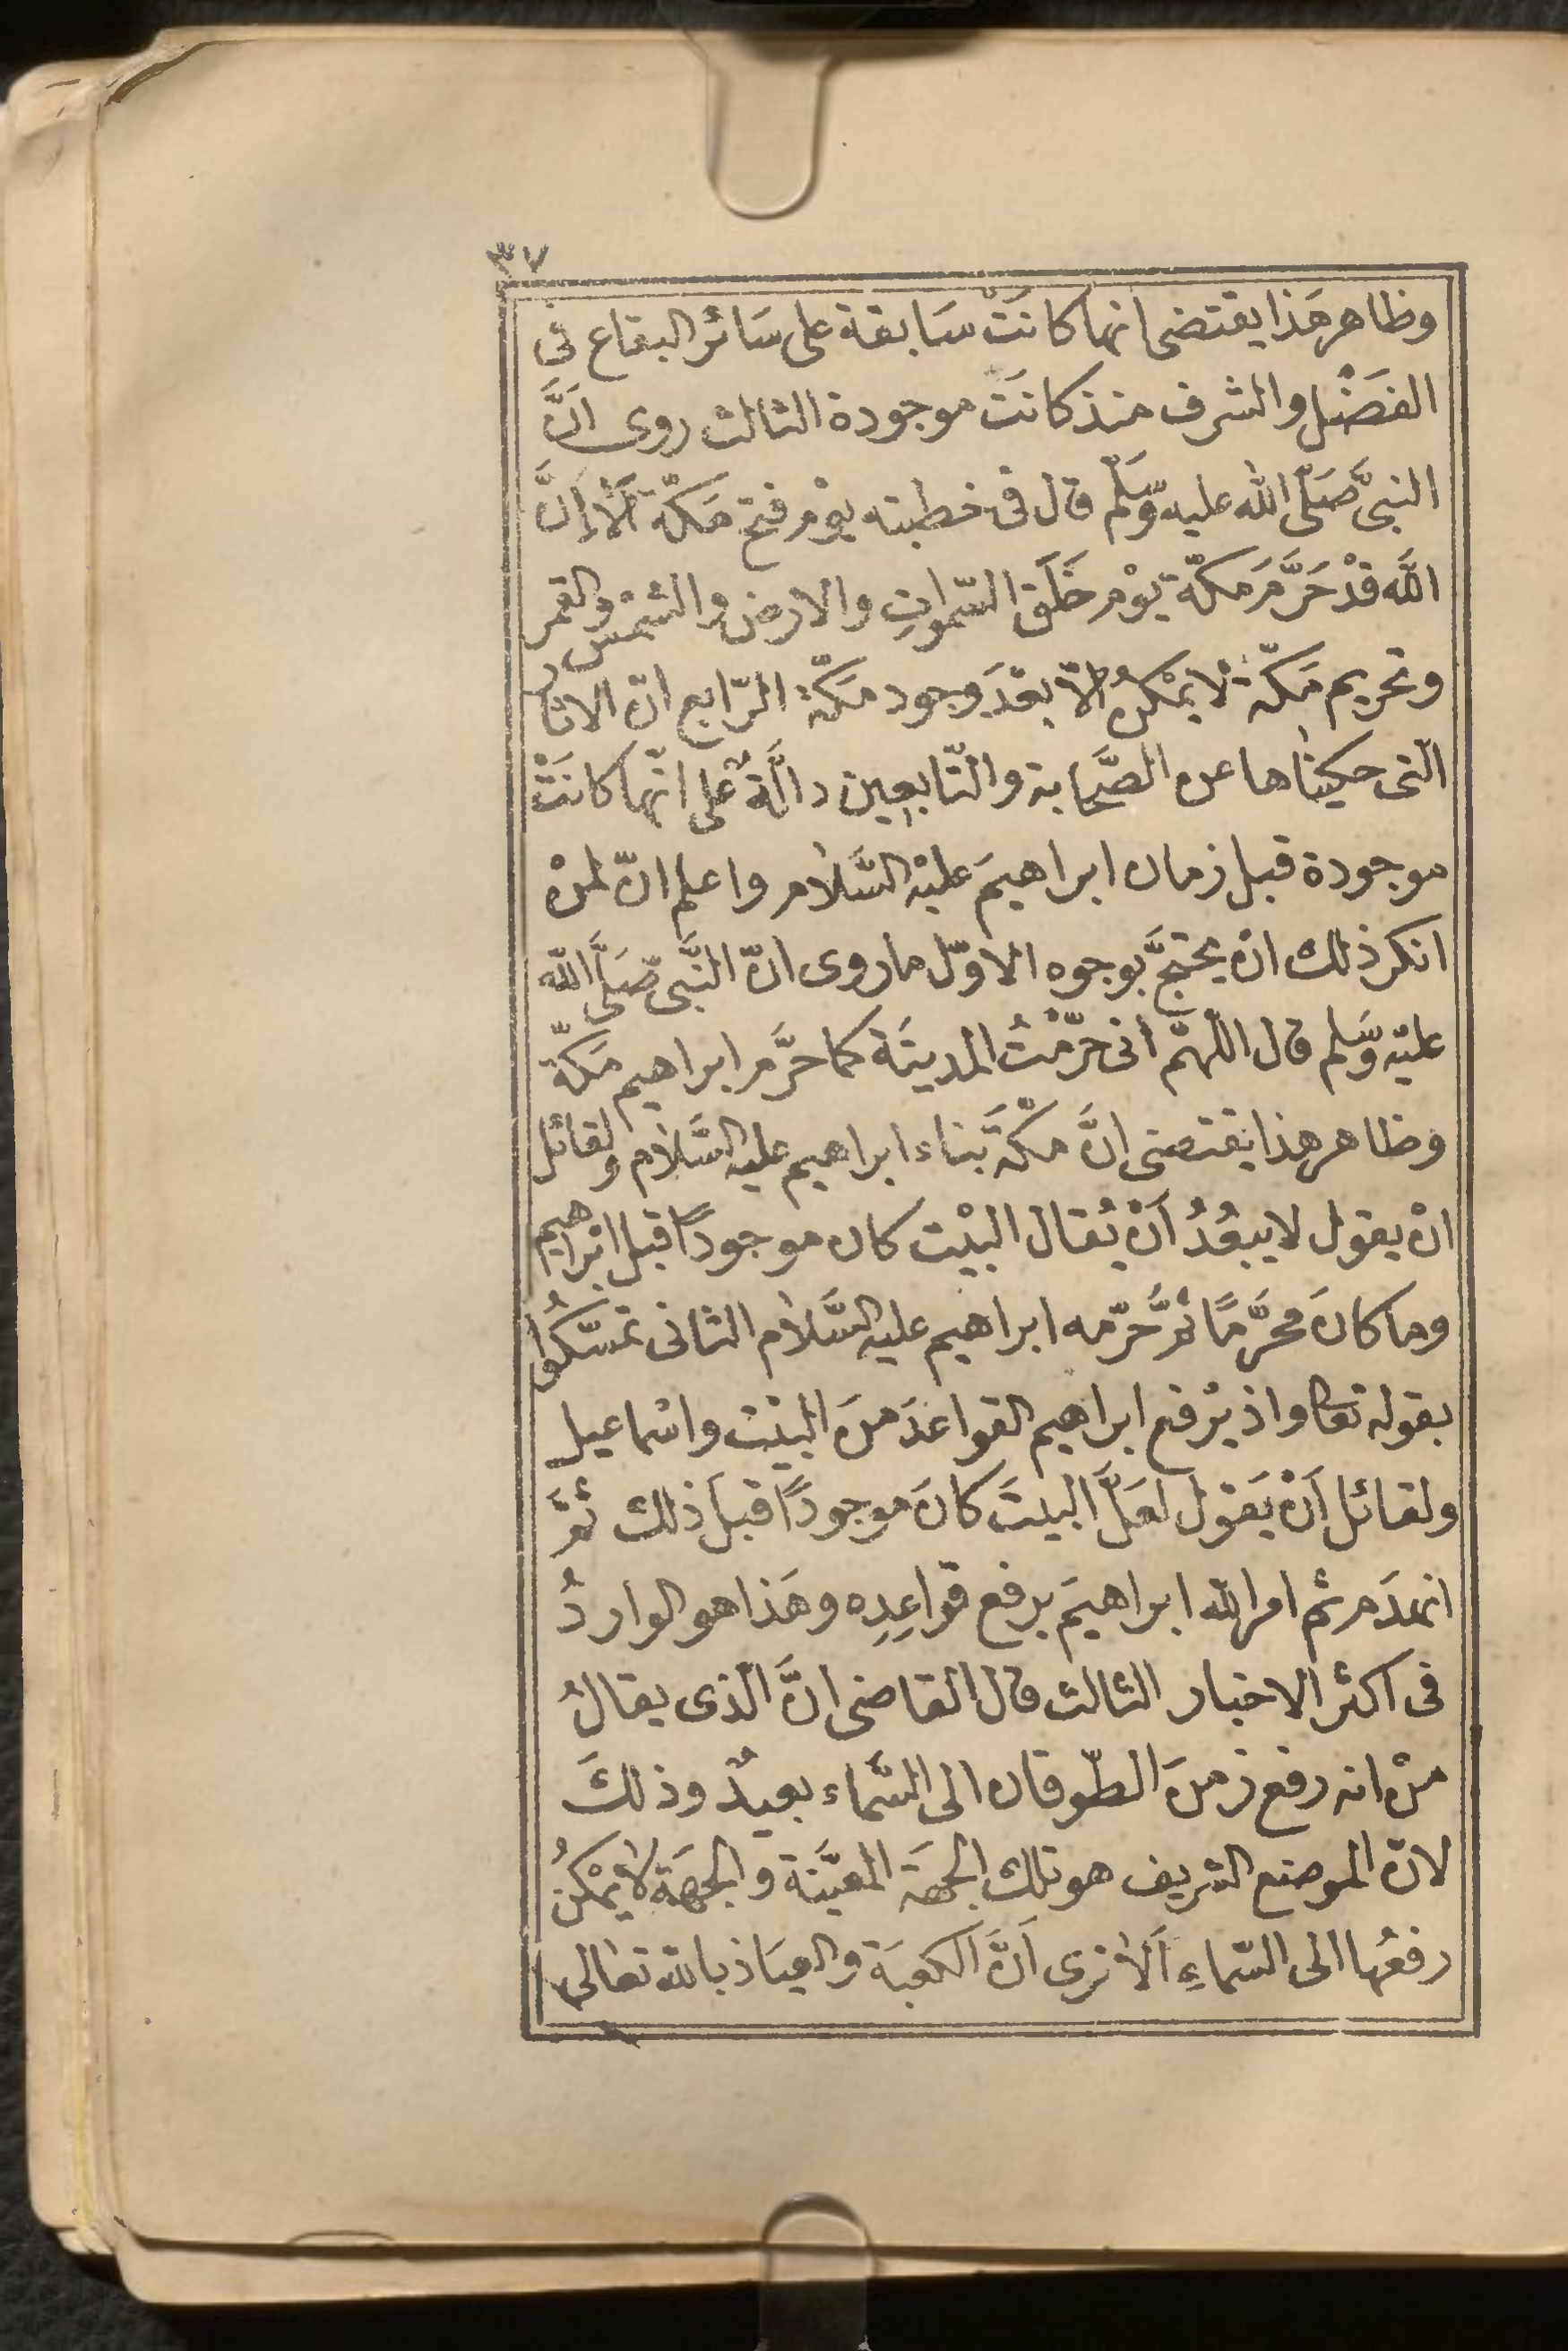 ٣٧
وظاهر هَذا يقتضى انها كانَتْ سَابقة على سَائر البقاع فى
الفَضْل والشرف منذ كانَتَ موجودة الثالث روى اَنَّ
النبىَّ صَلّى الله عليه وَسَلّم قال فى خطبته يوْم فتح مَكّة اَلَا اِنَّ
اللَّه قدْ حَرَّمَ مَكّة يوْم خَلَق السّموات والارض والشمس والقمر
وتحريم مَكّة لا يمْكنُ الّا بعْدَ وجود مَكّة الرّابع انّ الاثار
الّتى حكيناها عن الصَّحابة والتّابعين دالَّةٌ على انّها كانَتْ
موجودة قبل زمان ابراهيمَ عليْه السَّلام واعلم انّ لمنْ
انكر ذلك انْ يحتجَّ بوجوه الاوّل ما روى انّ النَّبىّ صَلَّى اللّه
عليْه وَسَلم قال اللّهمّ انى حَرّمْتُ المدينَة كما حَرَّم ابراهيم مَكّة
وظاهر هذا يقتضى انَّ مكّة بَناء ابراهيم عليه السَّلام ولقائل
انْ يقول لا يبعُدُ اَنْ يُقال البيْت كان موجودًا قبل ابْراهيم
وما كانَ محَرَّمًا ثمَّ حَرّمه ابراهيم عليه السَّلام الثانى تمسَّكُوا
بقوله تعا واذ يرْفع ابراهيم القواعدَ منَ البيْت واسْماعيل
ولقائل اَنْ يَقول لعَلَّ البيتَ كانَ موجودًا قبلَ ذلك ثمَّ
انهدَم ثم امر اللّه ابراهيمَ برفع قواعِدِه وهَذا هو الواردُ
فى اكثر الاخبار الثالث قال القاضى انَّ الّذى يقالُ
منْ انه رفع زمنَ الطّوفان الى السَّماء بعيدٌ وذلكَ
لانّ الموضع الشريف هو تلك الجهَة المعيَّنة والجهَة لا يمْكنُ
رفعُها الى السّماءِ اَلَا ترى اَنَّ اَلكعبَة والعيَاذ باللّه تعالى